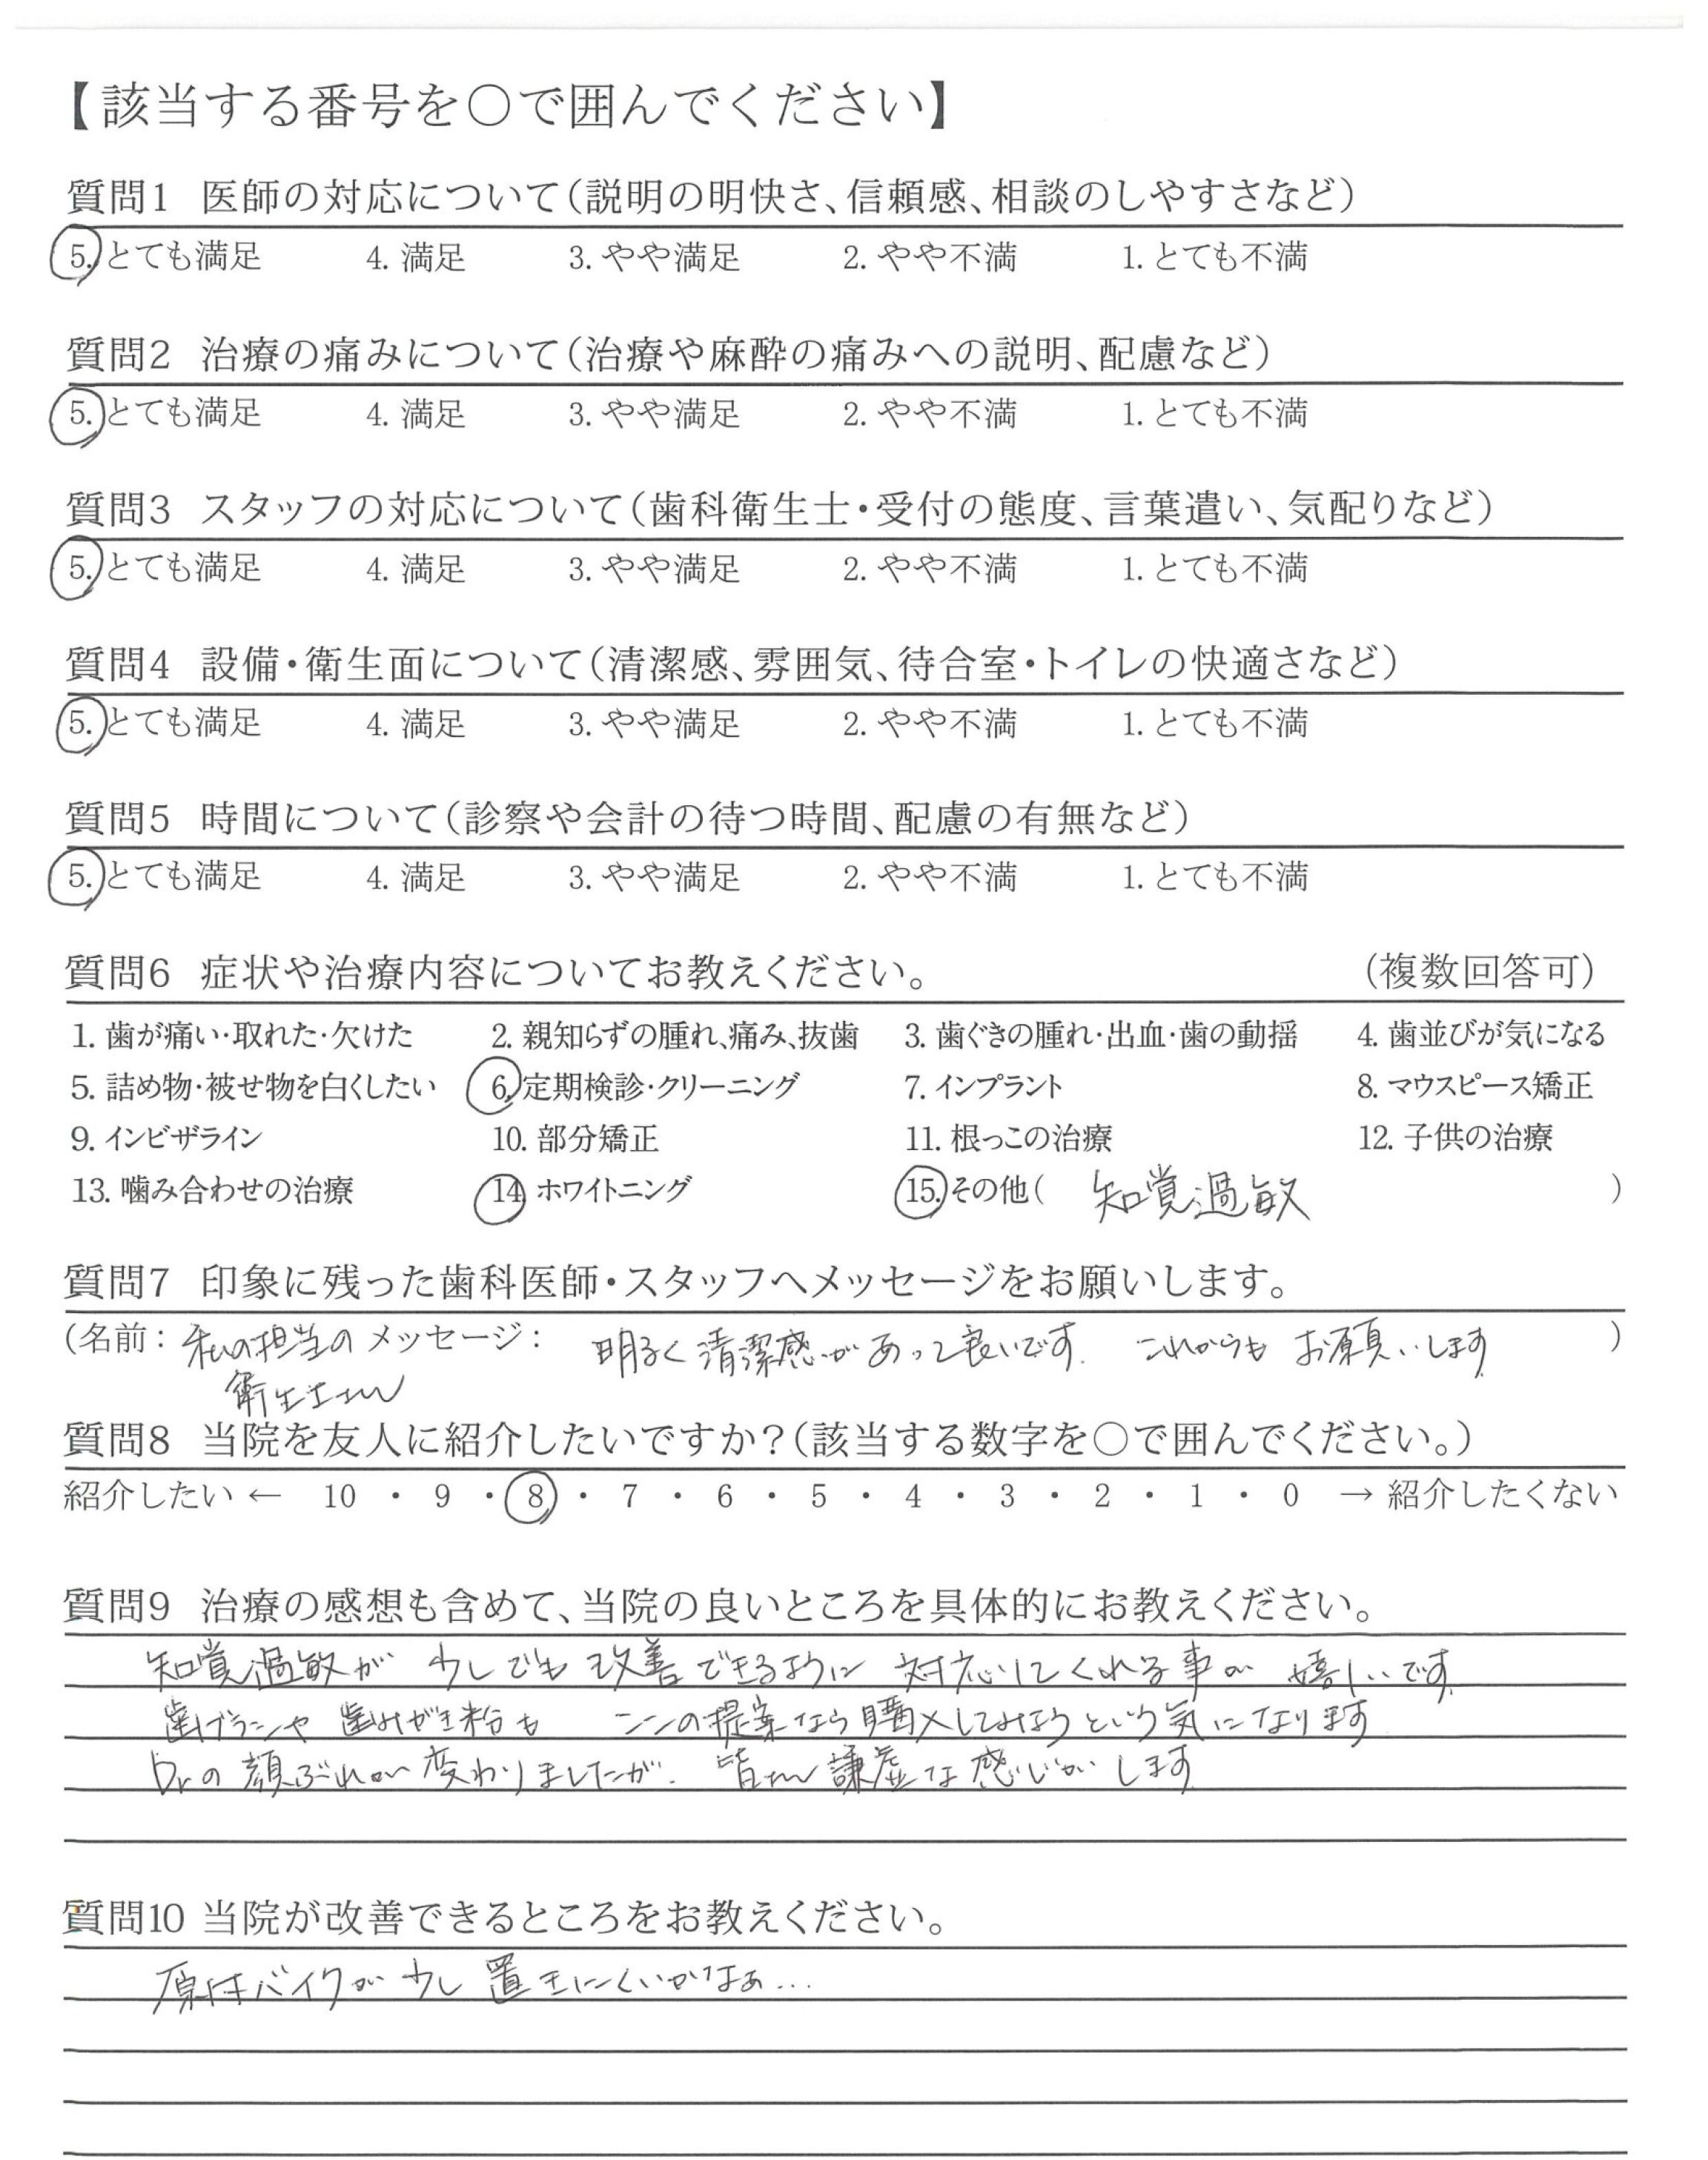 【該当する番号を○で囲んでください】
質問1 医師の対応について(説明の明快さ、信頼感、相談のしやすさなど)
5. とても満足 4. 満足 3. やや満足 2. やや不満 1. とても不満
質問2 治療の痛みについて(治療や麻酔の痛みへの説明、配慮など)
5. とても満足 4. 満足 3. やや満足 2. やや不満 1. とても不満
質問3 スタッフの対応について(歯科衛生士・受付の態度、言葉遣い、気配りなど)
5. とても満足 4. 満足 3. やや満足 2. やや不満 1. とても不満
質問4 設備・衛生面について(清潔感、雰囲気、待合室・トイレの快適さなど)
5. とても満足 4. 満足 3. やや満足 2. やや不満 1. とても不満
質問5 時間について(診察や会計の待つ時間、配慮の有無など)
5. とても満足 4. 満足 3. やや満足 2. やや不満 1. とても不満
質問6 症状や治療内容についてお教えください。 (複数回答可)
1. 歯が痛い・取れた・欠けた 2. 親知らずの腫れ、痛み、抜歯 3. 歯ぐきの腫れ・出血・歯の動揺 4. 歯並びが気になる
5. 詰め物・被せ物を白くしたい 6. 定期検診・クリーニング 7. インプラント 8. マウスピース矯正
9. インビザライン 10. 部分矯正 11. 根っこの治療 12. 子供の治療
13. 噛み合わせの治療 14. ホワイトニング 15. その他( 知覚過敏 )
質問7 印象に残った歯科医師・スタッフへメッセージをお願いします。
(名前: 私の担当の メッセージ: 明るく清潔感があって良いです. これからも お願いします )
衛生士さん
質問8 当院を友人に紹介したいですか?(該当する数字を○で囲んでください。)
紹介したい ← 10 ・ 9 ・ 8 ・ 7 ・ 6 ・ 5 ・ 4 ・ 3 ・ 2 ・ 1 ・ 0 → 紹介したくない
質問9 治療の感想も含めて、当院の良いところを具体的にお教えください。
知覚過敏が 少しでも 改善できるように 対応してくれる事が 嬉しいです.
歯ブラシや 歯みがき粉も ここの提案なら購入してみようという気になります
Drの 顔ぶれが 変わりましたが. 皆さん 謙虚な 感じが します
質問10 当院が改善できるところをお教えください。
原付バイクが 少し 置きにくいかなぁ...